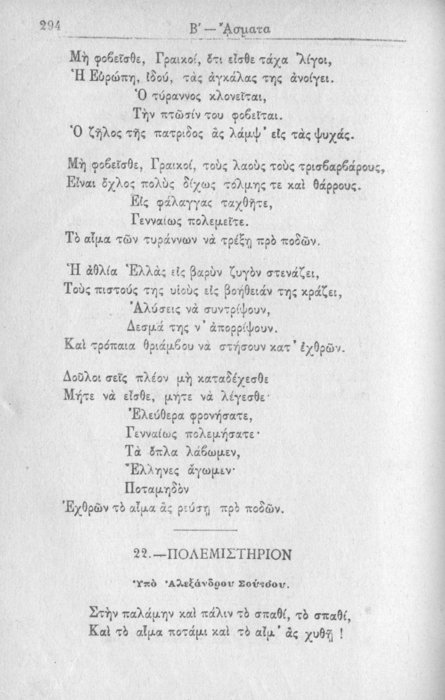 294
Β′ — ᾌσματα
Μὴ φοβεῖσθε, Γραικοί, ὅτι εἶσθε τάχα ᾿λίγοι,
Ἡ Εὐρώπη, ἰδού, τὰς ἀγκάλας της ἀνοίγει.
Ὁ τύραννος κλονεῖται,
Τὴν πτῶσίν του φοβεῖται.
Ὁ ζῆλος τῆς πατρίδος ἂς λάμψ᾿ εἰς τὰς ψυχάς.
Μὴ φοβεῖσθε, Γραικοί, τοὺς λαοὺς τοὺς τρισβαρβάρους,
Εἶναι ὄχλος πολὺς δίχως τόλμης τε καὶ θάρρους.
Εἰς φάλαγγας ταχθῆτε,
Γενναίως πολεμεῖτε.
Τὸ αἷμα τῶν τυράννων νὰ τρέξῃ πρὸ ποδῶν.
Ἡ ἀθλία Ἑλλὰς εἰς βαρὺν ζυγὸν στενάζει,
Τοὺς πιστούς της υἱοὺς εἰς βοήθειάν της κράζει,
Ἁλύσεις νὰ συντρίψουν,
Δεσμά της ν᾿ ἀπορρίψουν.
Καὶ τρόπαια θριάμβου νὰ στήσουν κατ᾿ ἐχθρῶν.
Δοῦλοι σεῖς πλέον μὴ καταδέχεσθε
Μήτε νὰ εἶσθε, μήτε νὰ λέγεσθε·
Ἐλεύθερα φρονήσατε,
Γενναίως πολεμήσατε·
Τὰ ὅπλα λάβωμεν,
Ἕλληνες ἄγωμεν·
Ποταμηδὸν
Ἐχθρῶν τὸ αἷμα ἂς ρεύσῃ πρὸ ποδῶν.
22.—ΠΟΛΕΜΙΣΤΗΡΙΟΝ
Ὑπὸ Ἀλεξάνδρου Σούτσου.
Στὴν παλάμην καὶ πάλιν τὸ σπαθί, τὸ σπαθί,
Καὶ τὸ αἷμα ποτάμι καὶ τὸ αἷμ᾿ ἂς χυθῇ !